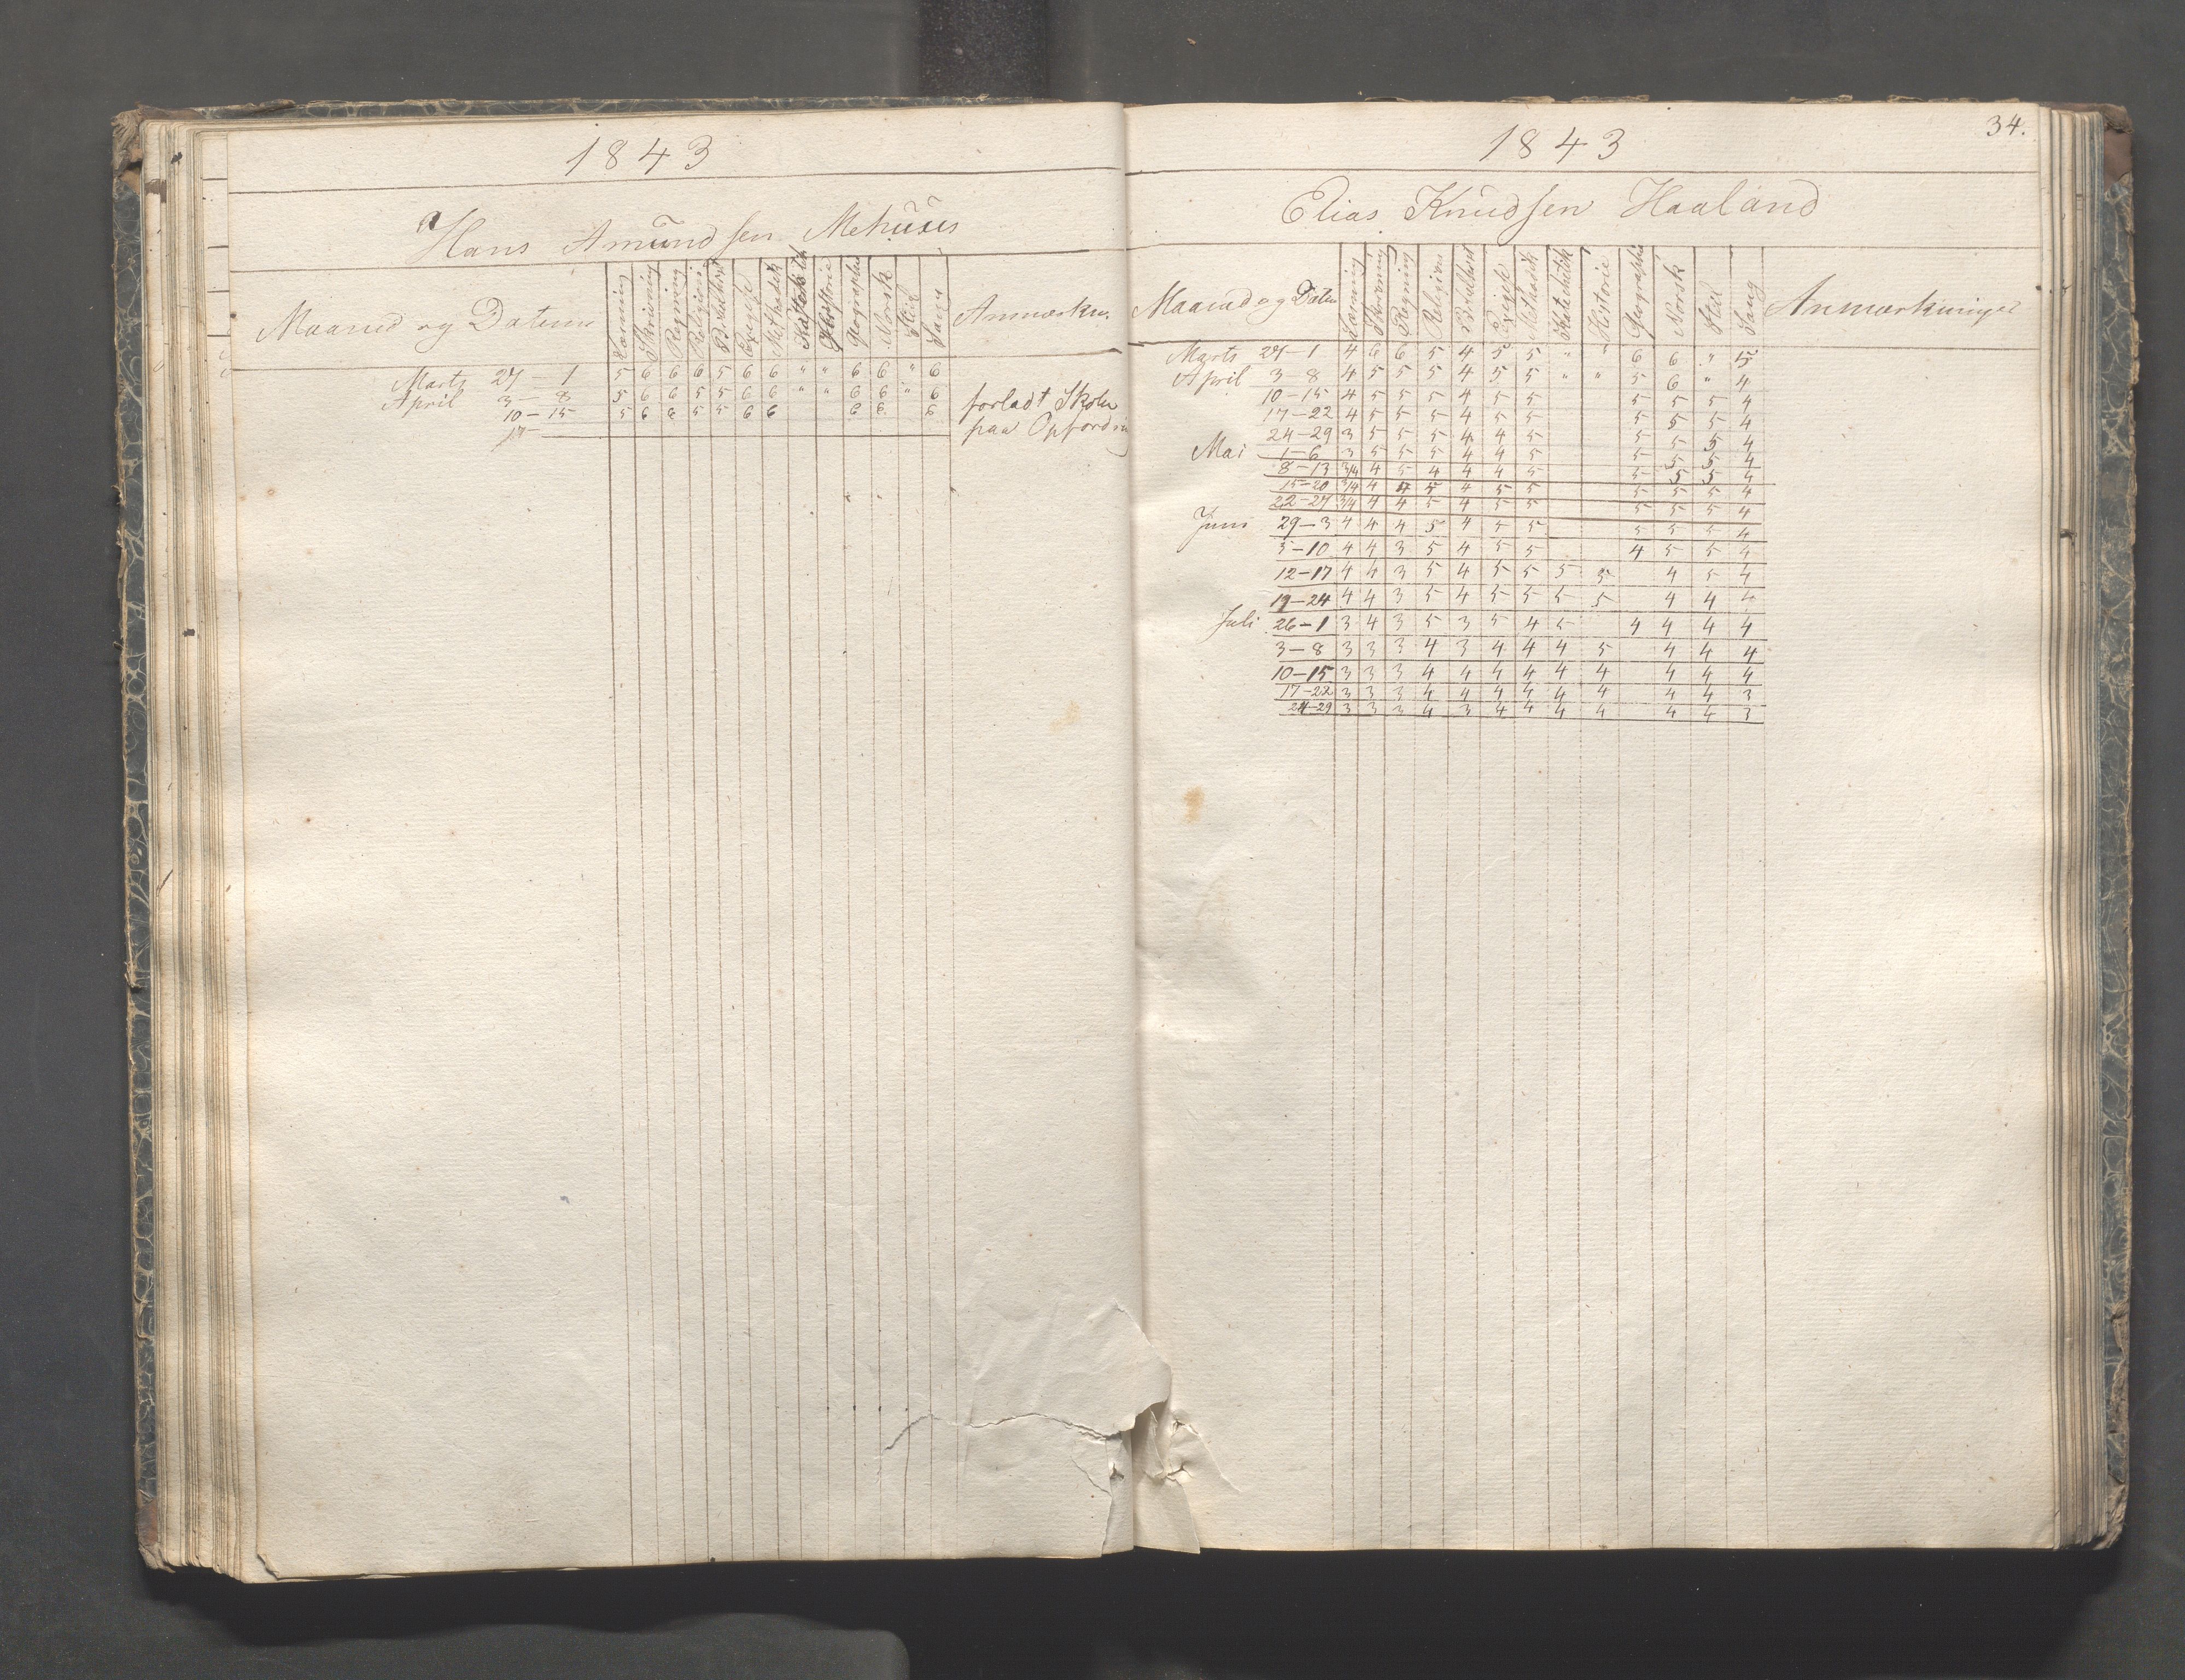 1843
Hans Amundsen Mehuus
Maaned og Datum Læsning Skrivning Regning Religion Bibelhist Exegese Methodik Katechetik Historie Geographie Norsk Stiil Sang Anmærkn.
Marts 27 – 1 5 6 6 6 5 6 6 " " 6 6 " 6
April 3 – 8 5 6 6 5 5 6 6 " " 6 6 " 6 forladt Skolen
10 – 15 5 6 6 5 5 6 6 6 6 6 paa Opfordring
17
34.
1843
Elias Knudsen Haaland
Maaned og Datum Læsning Skrivning Regning Religion Bibelhist Exegese Methodik Katechetik Historie Geographie Norsk Stiil Sang Anmærkninger
Marts 27 – 1 4 6 6 5 4 5 5 " " 6 6 " 5
April 3 – 8 4 5 5 5 4 5 5 " " 5 6 " 4
10 – 15 4 5 5 5 4 5 5 5 5 5 4
17 – 22 4 5 5 5 4 5 5 5 5 5 4
24 – 29 3 5 5 5 4 4 5 5 5 5 4
Mai 1 – 6 3 5 5 5 4 4 5 5 5 5 4
8 – 13 3/4 4 5 4 4 4 5 5 5 5 4
15 – 20 3/4 4 4 5 4 5 5 5 5 5 4
22 – 27 3/4 4 4 5 4 5 5 5 5 5 4
Juni 29 – 3 4 4 4 5 4 5 5 5 5 5 4
5 – 10 4 4 3 5 4 5 5 4 5 5 4
12 – 17 4 4 3 5 4 5 5 5 5 4 5 4
19 – 24 4 4 3 5 4 5 5 5 5 4 4 4
Juli 26 – 1 3 4 3 5 3 5 4 5 4 4 4 4
3 – 8 3 3 3 4 3 4 4 4 5 4 4 4
10 – 15 3 3 3 4 4 4 4 4 4 4 4 4
17 – 22 3 3 3 4 4 4 4 4 4 4 4 3
24 – 29 3 3 3 4 3 4 4 4 4 4 4 3